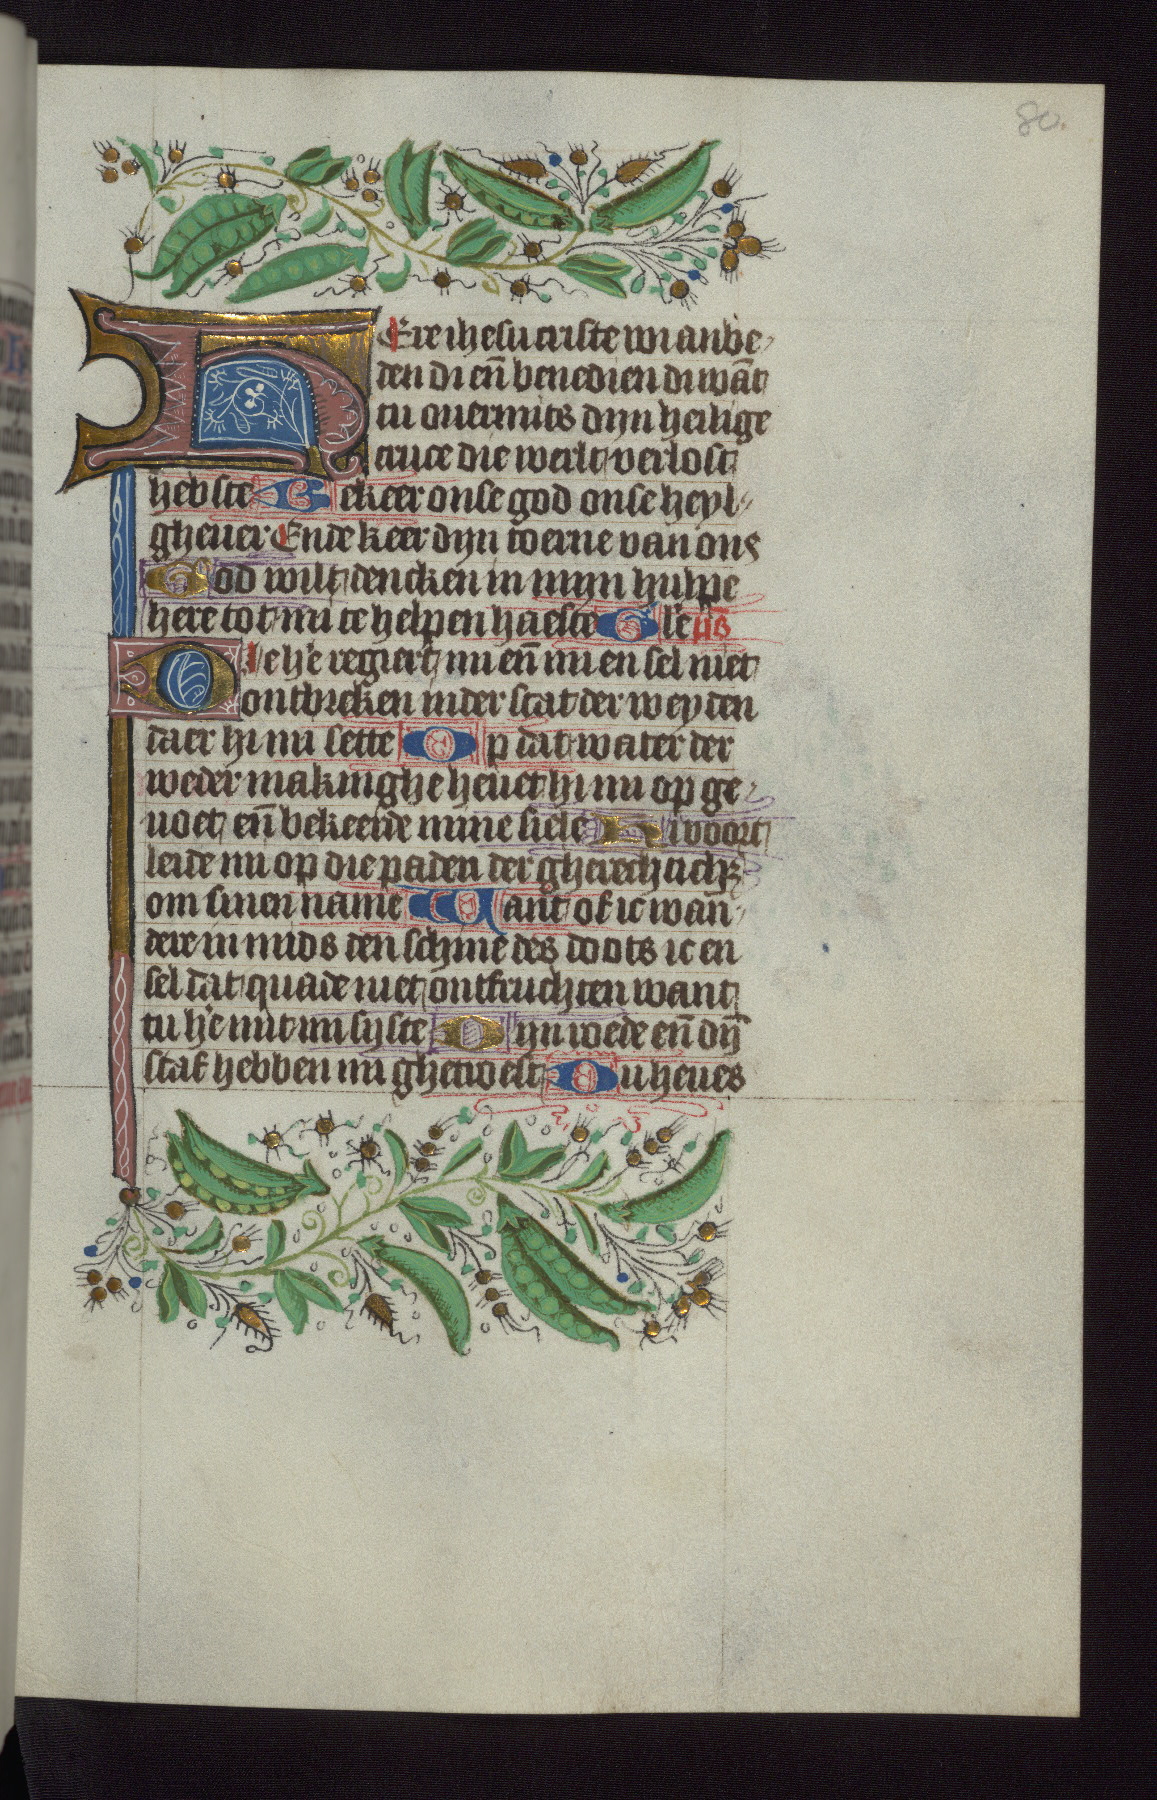 80.
HEre ihesu criste wi anbe
den di en̄ benedien di wāt
tu ouermits dijn heilige
cruce die werlt verlost
hebste Bekeer onse god onse heyl
gheuer Ende keer dijn toerne van ons
God wilt dencken in mijn hulpe
here tot mi te helpen haeste Glē ps̄
Die he' regiert mi en̄ mi en sel niet
ontbreken inder stat der weyden
daer hi mi sette Op dat water der
weder makinghe heuet hi mi op ge
uoet en̄ bekeerde mine siele Hi voort
leide mi op die paden der gherechticħ
om sinen name Want of ic wan
dere in mids den schime des doots ic en
sel dat quade niet ontfruchten want
tu he' mit mi sijste Dijn roede en̄ dij̄
staf hebben mi ghetroest Du heues